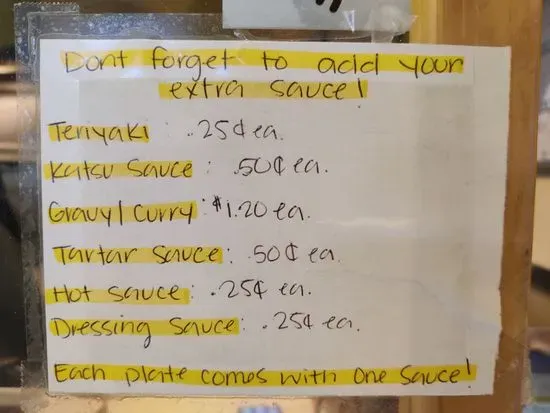 Dont forget to add your
extra sauce!
Teriyaki : .25¢ ea.
Katsu Sauce : .50¢ ea.
Gravy/Curry : $1.20 ea.
Tartar Sauce : .50¢ ea.
Hot sauce : .25¢ ea.
Dressing Sauce : .25¢ ea.
Each plate comes with one sauce!